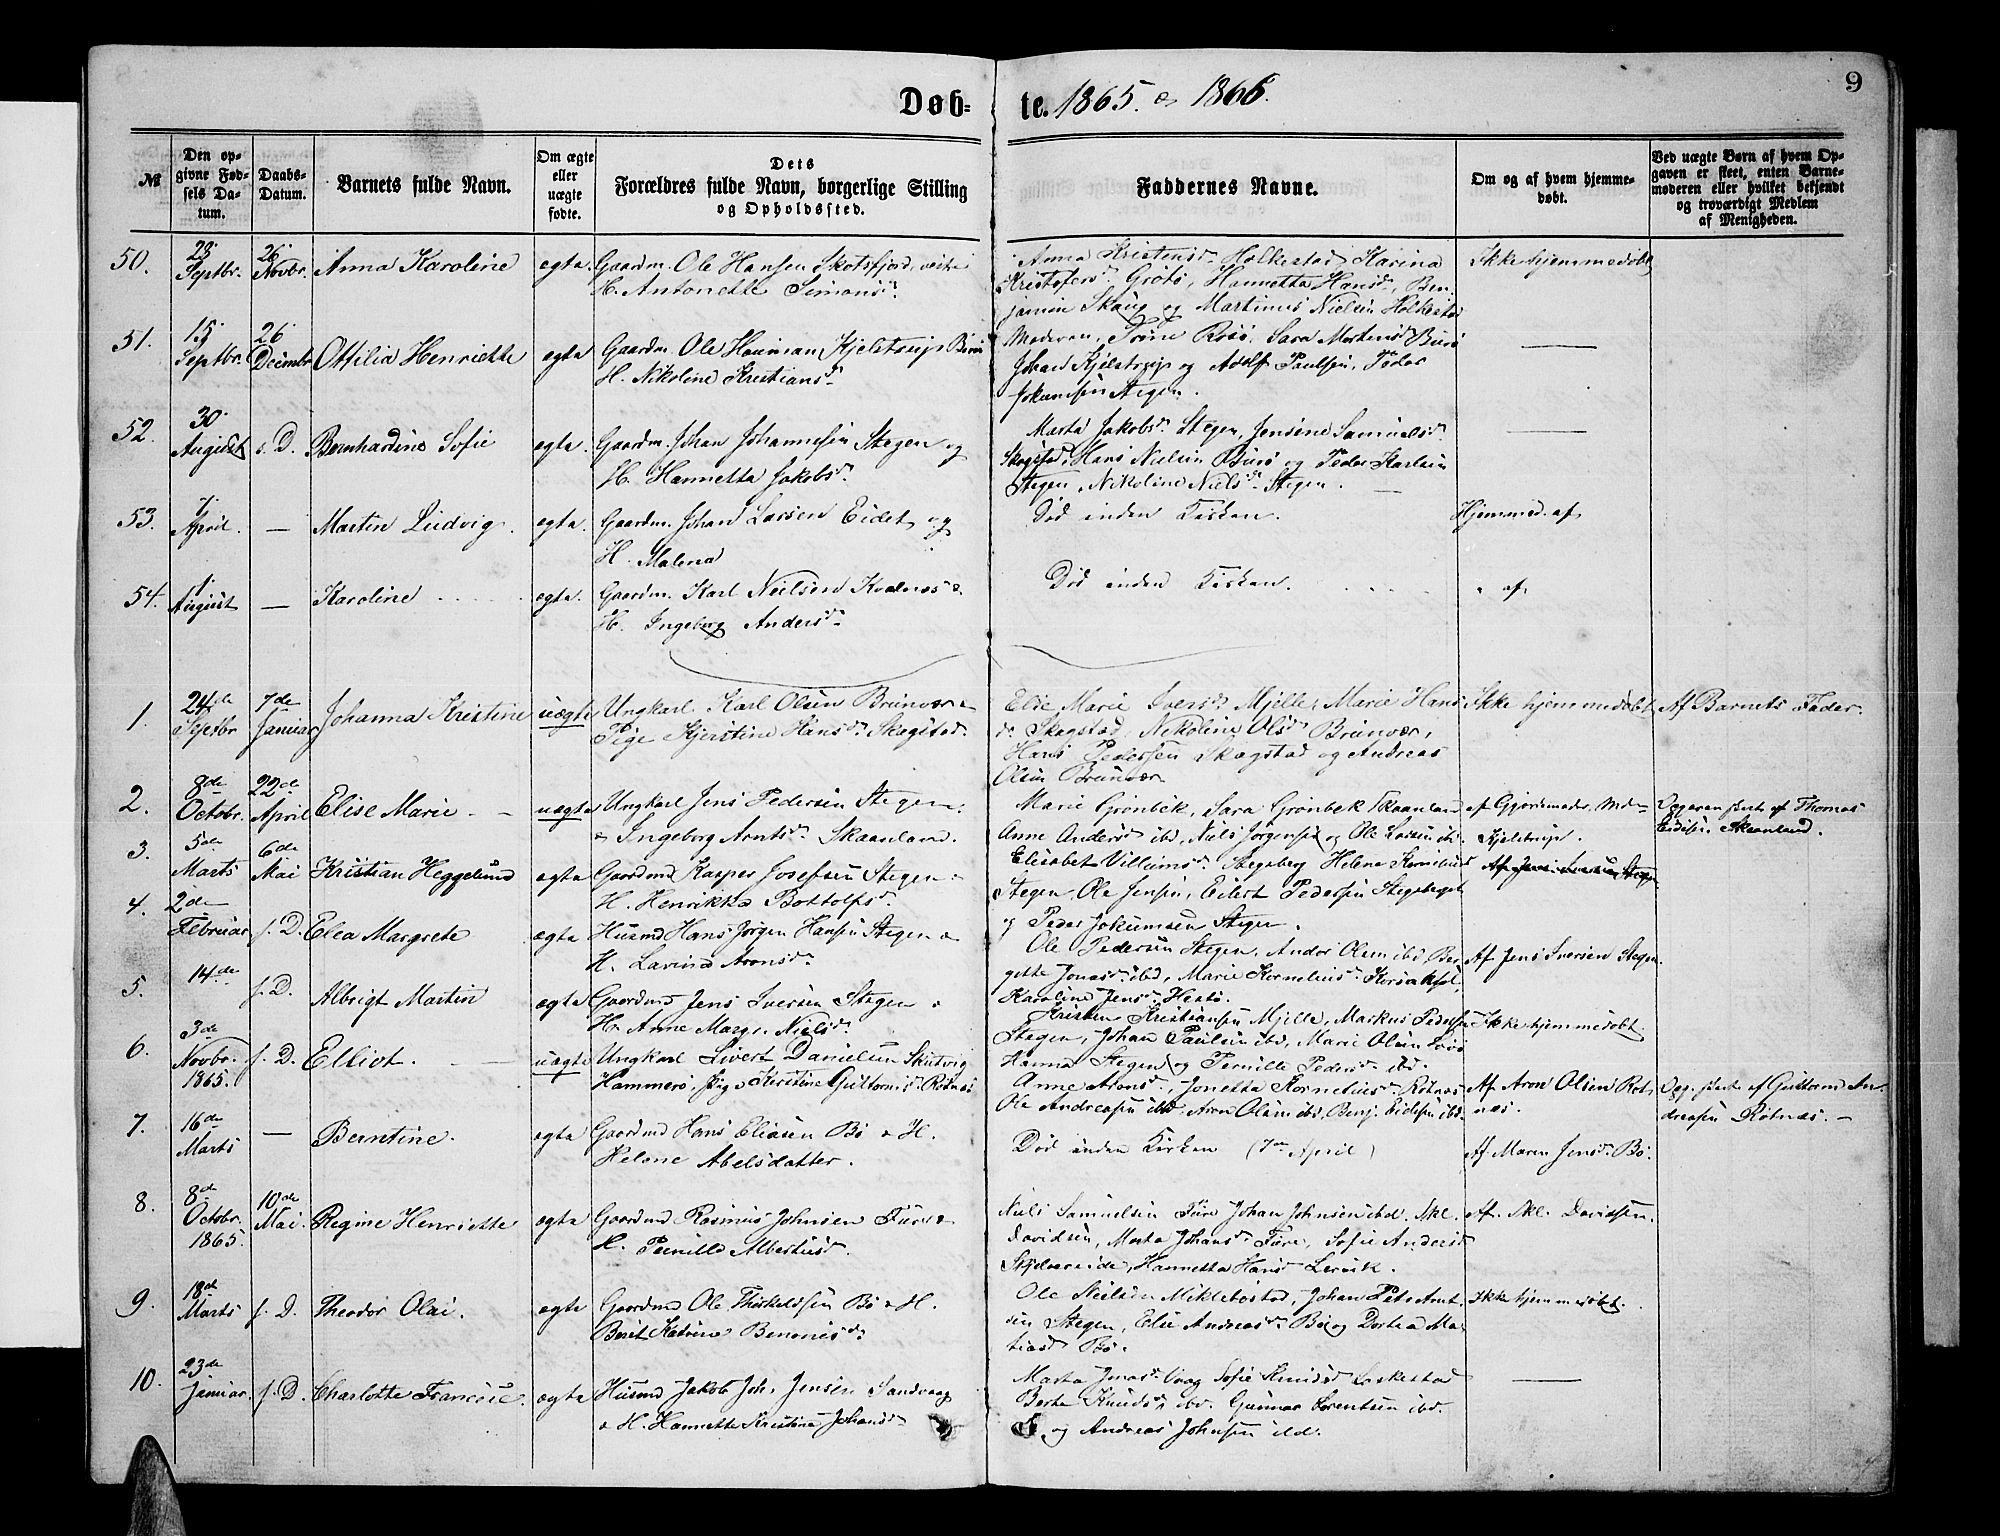 9
Døb- te. 1865. & 1866.
№
Den op-
givne Fød-
sels Da-
tum.
Daabs-
Datum.
Barnets fulde Navn.
Om ægte
eller
uægte
fødte.
Dets
Forældres fulde Navn, borgerlige Stilling
og Opholdssted.
Faddernes Navne.
Om og af hvem hjemme-
døbt.
Ved uægte Børn af hvem Op-
gaven er skeet, enten Barne-
moderen eller hvilket bekjendt
og troværdigt Medlem
af Menigheden.
50. 28 Septbr. 26 Novbr. Anna Karoline ægta. Gaardm. Ole Hansen Skotsfjord, vestre
H. Antonette Simonsd.
Anna Kristensd. Holkestad, Karina
Kristofersd. Grøtø, Hannetta Hansd., Ben-
jamin Skaug og Martinus Nielsen Holkestad
Ikke hjemmedøbt
51. 15 Septbr. 26 Decimbr Ottilia Henriette ægta Gaardm. Ole Hauman Kjelstrup Burø
H. Nikoline Kristiansd.
Moderen, Trine Rosø, Sara Mortensd. Burø
Johan Kjelstrup og Adolf Paulsen, Peder
Jokumsen Stegen.
52. 30 August s. D. Bernhardine Sofie ægta. Gaardm. Johan Johannesen Stegen og
H. Hannetta Jakobsd.
Marta Jakobsd. Stegen, Jensine Samuelsd.
Skogstad, Hans Nielsen Burø og Peder Karlsen
Stegen, Nikoline Nielsd. Stegen.
53. 7 April. — Martin Ludvig. ægta Gaardm. Johan Larsen Eidet og
H. Malena
Død inden Kirken.
Hjemmed. af
54. 1 August — Karoline ægta. Gaardm. Karl Nielsen Kvalnæs &
H. Ingeborg Andersd.
Død inden Kirken.
" af
1. 24de Septbr 7de Januar Johanna Kristine uægte Ungkarl Karl Olsen Brunvær &
Pige Kjerstine Hansd. Skogstad.
Elie Marie Iversd. Mjelle, Marie Hans
d. Skogstad, Nikoline Olsd. Brunvær,
Hans Pedersen Skogstad og Andreas
Olsen Brunvær
Ikke hjemmedøbt
Af Barnets Fader.
2. 8de Octobr. 22de April Elise Marie uægte Ungkarl Jens Pedersen Stegen
& Ingeborg Arntsd. Skaanland.
Marie Grønbek, Sara Grønbek Skaanland
Anne Andersd ibd, Niels Jørgensen og Ole Larsen ibd.
af Gjordmoder Md-
Kjelstrup.
Opgaven skeet af Thomas
Eidisen Skaanland.
3. 5de Marts 6de Mai Kristian Heggelund ægta Gaardmd Kasper Josefsen Stegen &
H. Henrikka Bottolfsd.
Elisabet Villumsd. Stegsberg Helena Korneliusd
Stegen, Ole Jensen, Eilert Pedersen Stegsberget
og Peder Jokumsen Stegen.
Af Jens Iversen Stegen
4. 2de Februar s. D. Elea Margrete ægta Husmd Hans Jørgen Hansen Stegen &
H. Lavina Aronsd.
Ole Pedersen Stegen, Andor Olsen ibd, Ber-
gette Jonasd. ibd, Marie Kornelius d.
Karoline Jensd. Hestø.
Af Jens Iversen Stegen.
5. 14de s. D. Albrigt Martin ægta Gaardmd Jens Iversen Stegen &
H. Anne Margr. Nielsd.
Kristen Kristiansen Mjelle, Markus Pedersen
Stegen, Johan Paulsen ibd, Marie Olsen
Hanna Stegen og Pernille Pedersd. ibd.
Ikke hjemmedøbt.
6. 3de Novbr. 1865. s. D. Elliot. uægte Ungkarl Sivert Danielsen Skutvig
Hammerø, Pige Kirstine Guttormsd. Rotnæs
Anne Aronsd., Jonetta Korneliusd. Rotnæs
Ole Andreasen ibd, Aron Olsen ibd, Benj. Eidesen ibd.
Af Aron Olsen Rot-
næs.
Opg. skeet af Guttorm An-
dreasen Rotnæs. —
7. 16de Marts — Berntine. ægta Gaardmd Hans Eliasen Bø & H.
Helene Abelsdatter.
Død inden Kirken (7de April)
Af Maren Jensd. Bø.
8. 8de Octobr. 1865. 10de Mai Regine Henriette ægta Gaardmd Rasmus Johnsen Fure &
H. Pernille Albertusd.
Niels Samuelsen Fure Johan Johnsen ibd. Mkl.
Davidsen, Marta Johansd. Fure, Sofie Andersd
Skjelvareide, Hannetta Hansd Lervik.
Af. Mkl. Davidsen.
9. 18de Marts s. D. Theodor Olai. ægta Gaardmd Ole Thirkeldsen Bø & H.
Berit Katrine Benonisd.
Ole Neilsen Miklebostad, Johan Petr Arnt-
sen Stegen, Elie Andreasd. Bø og Dorthea Ma-
tiasd Bø.
Ikke hjemmedøbt.
10. 23de Januar. s. D. Charlotte Francise. ægta Husmd Jakob Joh. Jensen Sandvaag
& H. Hannetta Kristine Johansd.
Marta Jonasd. Vaag Sofie Knudsd Laskestad
Berta Knudsd ibd. Gunnar Lorentsen ibd.
og Andreas Johnsen ibd.